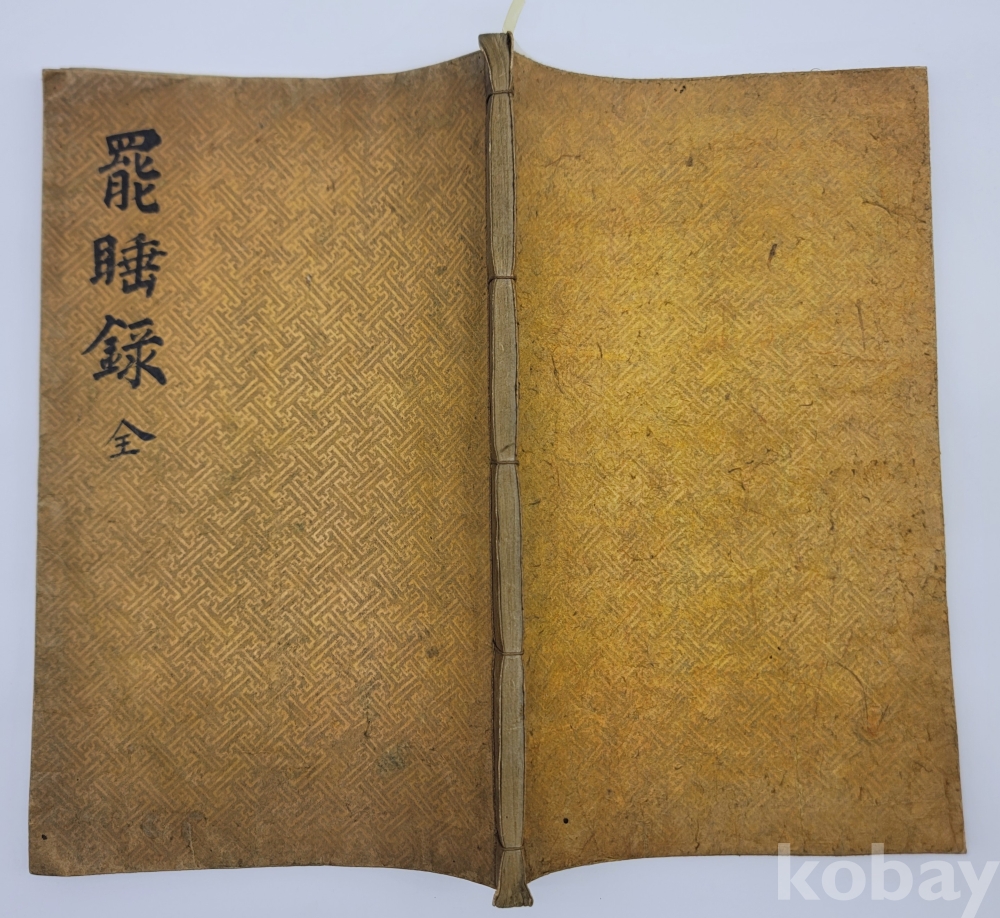 罷睡録
全
kobay